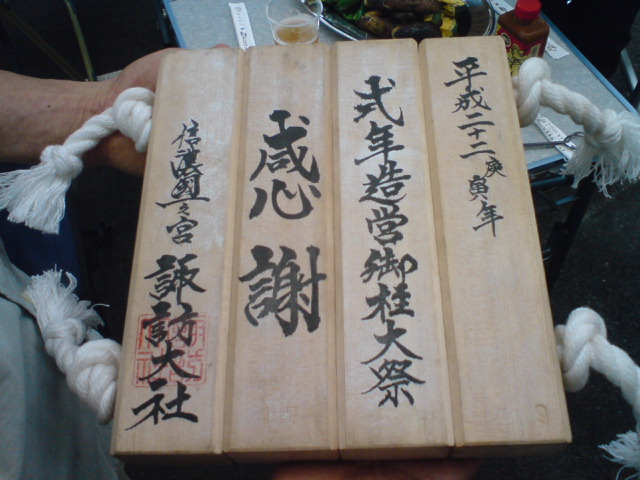 平成二十二庚寅年
式年造営御柱大祭
感謝
信濃國一之宮
諏訪大社